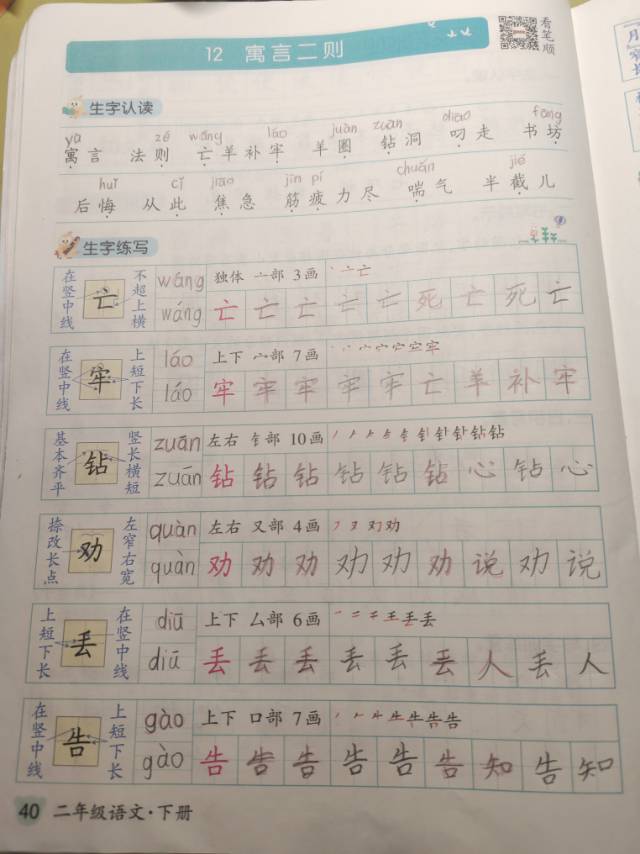 看笔顺
12 寓言二则
生字认读
yù zé wáng láo juàn zuān diāo fāng
寓言 法则 亡羊补牢 羊圈 钻洞 叼走 书坊
huǐ cǐ jiāo jīn pí chuǎn jié
后悔 从此 焦急 筋疲力尽 喘气 半截儿
生字练写
在竖中线 亡 不超上横 wáng 独体 亠部 3画 丶亠亡
wáng 亡 亡 亡 亡 亡 死 亡 死 亡
在竖中线 牢 上短下长 láo 上下 宀部 7画
láo 牢 牢 牢 牢 牢 亡 羊 补 牢
基本齐平 钻 竖长横短 zuān 左右 钅部 10画
zuān 钻 钻 钻 钻 钻 钻 心 钻 心
捺改长点 劝 左窄右宽 quàn 左右 又部 4画
quàn 劝 劝 劝 劝 劝 劝 说 劝 说
上短下长 丢 在竖中线 diū 上下 厶部 6画
diū 丢 丢 丢 丢 丢 丢 人 丢 人
在竖中线 告 上短下长 gào 上下 口部 7画
gào 告 告 告 告 告 告 知 告 知
40 二年级语文·下册